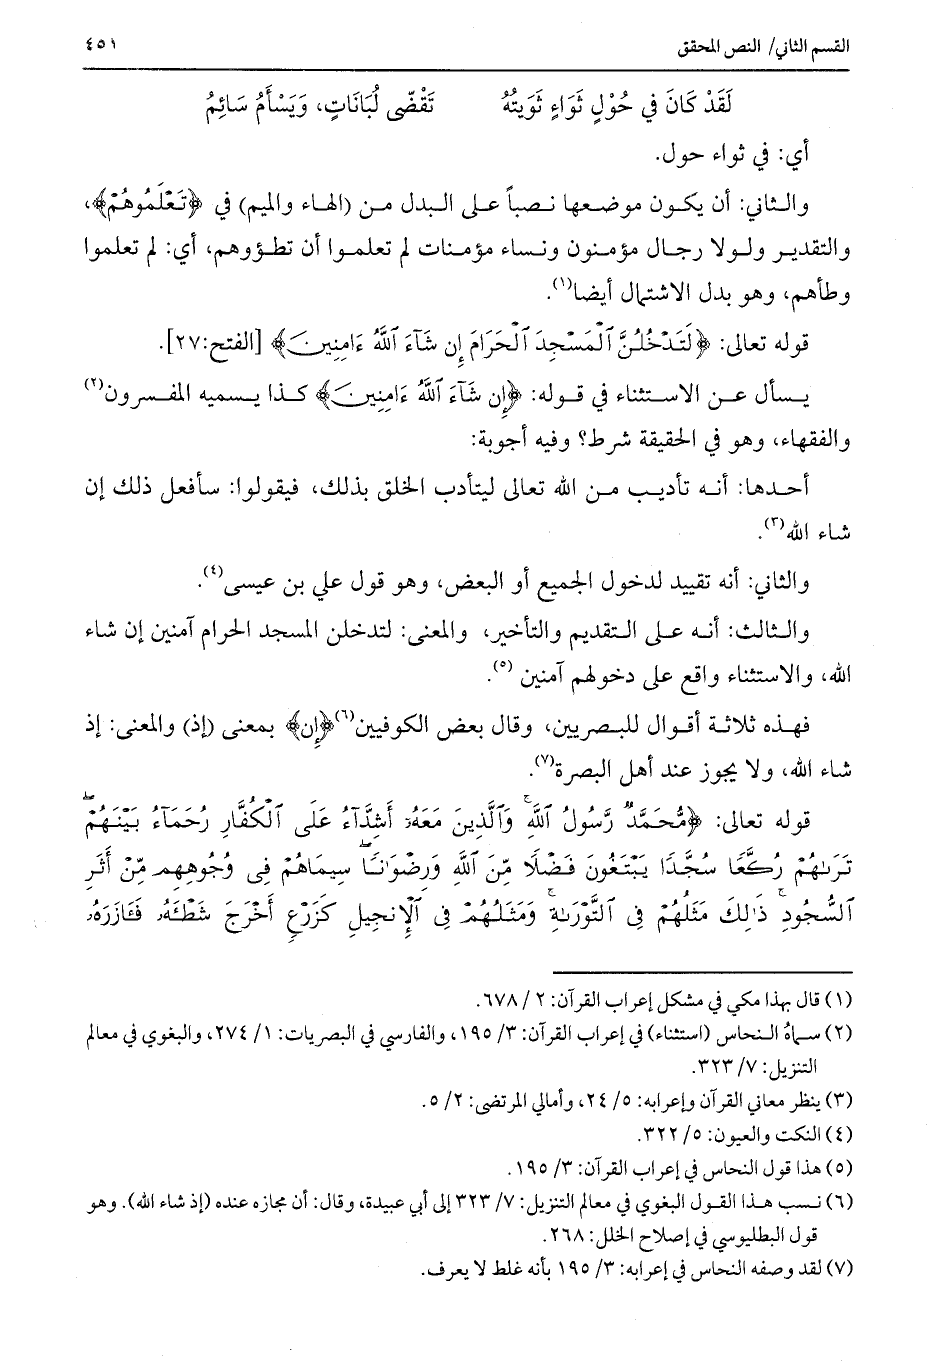 القسم الثاني/ النص المحقق ٤٥١
لَقَدْ كَانَ في حُوْلٍ ثَوَاءٍ ثَوَيتُهُ تَقْضّى لُبَانَاتٍ، وَيَسْأَمُ سَائِمُ
أي: في ثواء حول.
والثاني: أن يكون موضعها نصباً على البدل من (الهاء والميم) في ﴿تَعْلَمُوهُمْ﴾،
والتقدير ولولا رجال مؤمنون ونساء مؤمنات لم تعلموا أن تطؤوهم، أي: لم تعلموا
وطأهم، وهو بدل الاشتمال أيضا(١).
قوله تعالى: ﴿لَتَدْخُلُنَّ ٱلْمَسْجِدَ ٱلْحَرَامَ إِن شَآءَ ٱللَّهُ ءَامِنِينَ﴾ [الفتح:٢٧].
يسأل عن الاستثناء في قوله: ﴿إِن شَآءَ ٱللَّهُ ءَامِنِينَ﴾ كذا يسميه المفسرون(٢)
والفقهاء، وهو في الحقيقة شرط؟ وفيه أجوبة:
أحدها: أنه تأديب من الله تعالى ليتأدب الخلق بذلك، فيقولوا: سأفعل ذلك إن
شاء الله(٣).
والثاني: أنه تقييد لدخول الجميع أو البعض، وهو قول علي بن عيسى(٤).
والثالث: أنه على التقديم والتأخير، والمعنى: لتدخلن المسجد الحرام آمنين إن شاء
الله، والاستثناء واقع على دخولهم آمنين (٥).
فهذه ثلاثة أقوال للبصريين، وقال بعض الكوفيين(٦)﴿إِن﴾ بمعنى (إذ) والمعنى: إذ
شاء الله، ولا يجوز عند أهل البصرة(٧).
قوله تعالى: ﴿مُّحَمَّدٌ رَّسُولُ ٱللَّهِۚ وَٱلَّذِينَ مَعَهُۥٓ أَشِدَّآءُ عَلَى ٱلْكُفَّارِ رُحَمَآءُ بَيْنَهُمْۖ
تَرَىٰهُمْ رُكَّعًا سُجَّدًا يَبْتَغُونَ فَضْلًا مِّنَ ٱللَّهِ وَرِضْوَٰنًاۖ سِيمَاهُمْ فِى وُجُوهِهِم مِّنْ أَثَرِ
ٱلسُّجُودِۚ ذَٰلِكَ مَثَلُهُمْ فِى ٱلتَّوْرَىٰةِۚ وَمَثَلُهُمْ فِى ٱلْإِنجِيلِ كَزَرْعٍ أَخْرَجَ شَطْـَٔهُۥ فَـَٔازَرَهُۥ
(١) قال بهذا مكي في مشكل إعراب القرآن: ٢/ ٦٧٨.
(٢) سماهُ النحاس (استثناء) في إعراب القرآن: ٣/ ١٩٥، والفارسي في البصريات: ١/ ٢٧٤، والبغوي في معالم
التنزيل: ٧/ ٣٢٣.
(٣) ينظر معاني القرآن وإعرابه: ٥/ ٢٤، وأمالي المرتضى: ٢/ ٥.
(٤) النكت والعيون: ٥/ ٣٢٢.
(٥) هذا قول النحاس في إعراب القرآن: ٣/ ١٩٥.
(٦) نسب هذا القول البغوي في معالم التنزيل: ٧/ ٣٢٣ إلى أبي عبيدة، وقال: أن مجازه عنده (إذ شاء الله). وهو
قول البطليوسي في إصلاح الخلل: ٢٦٨.
(٧) لقد وصفه النحاس في إعرابه: ٣/ ١٩٥ بأنه غلط لا يعرف.